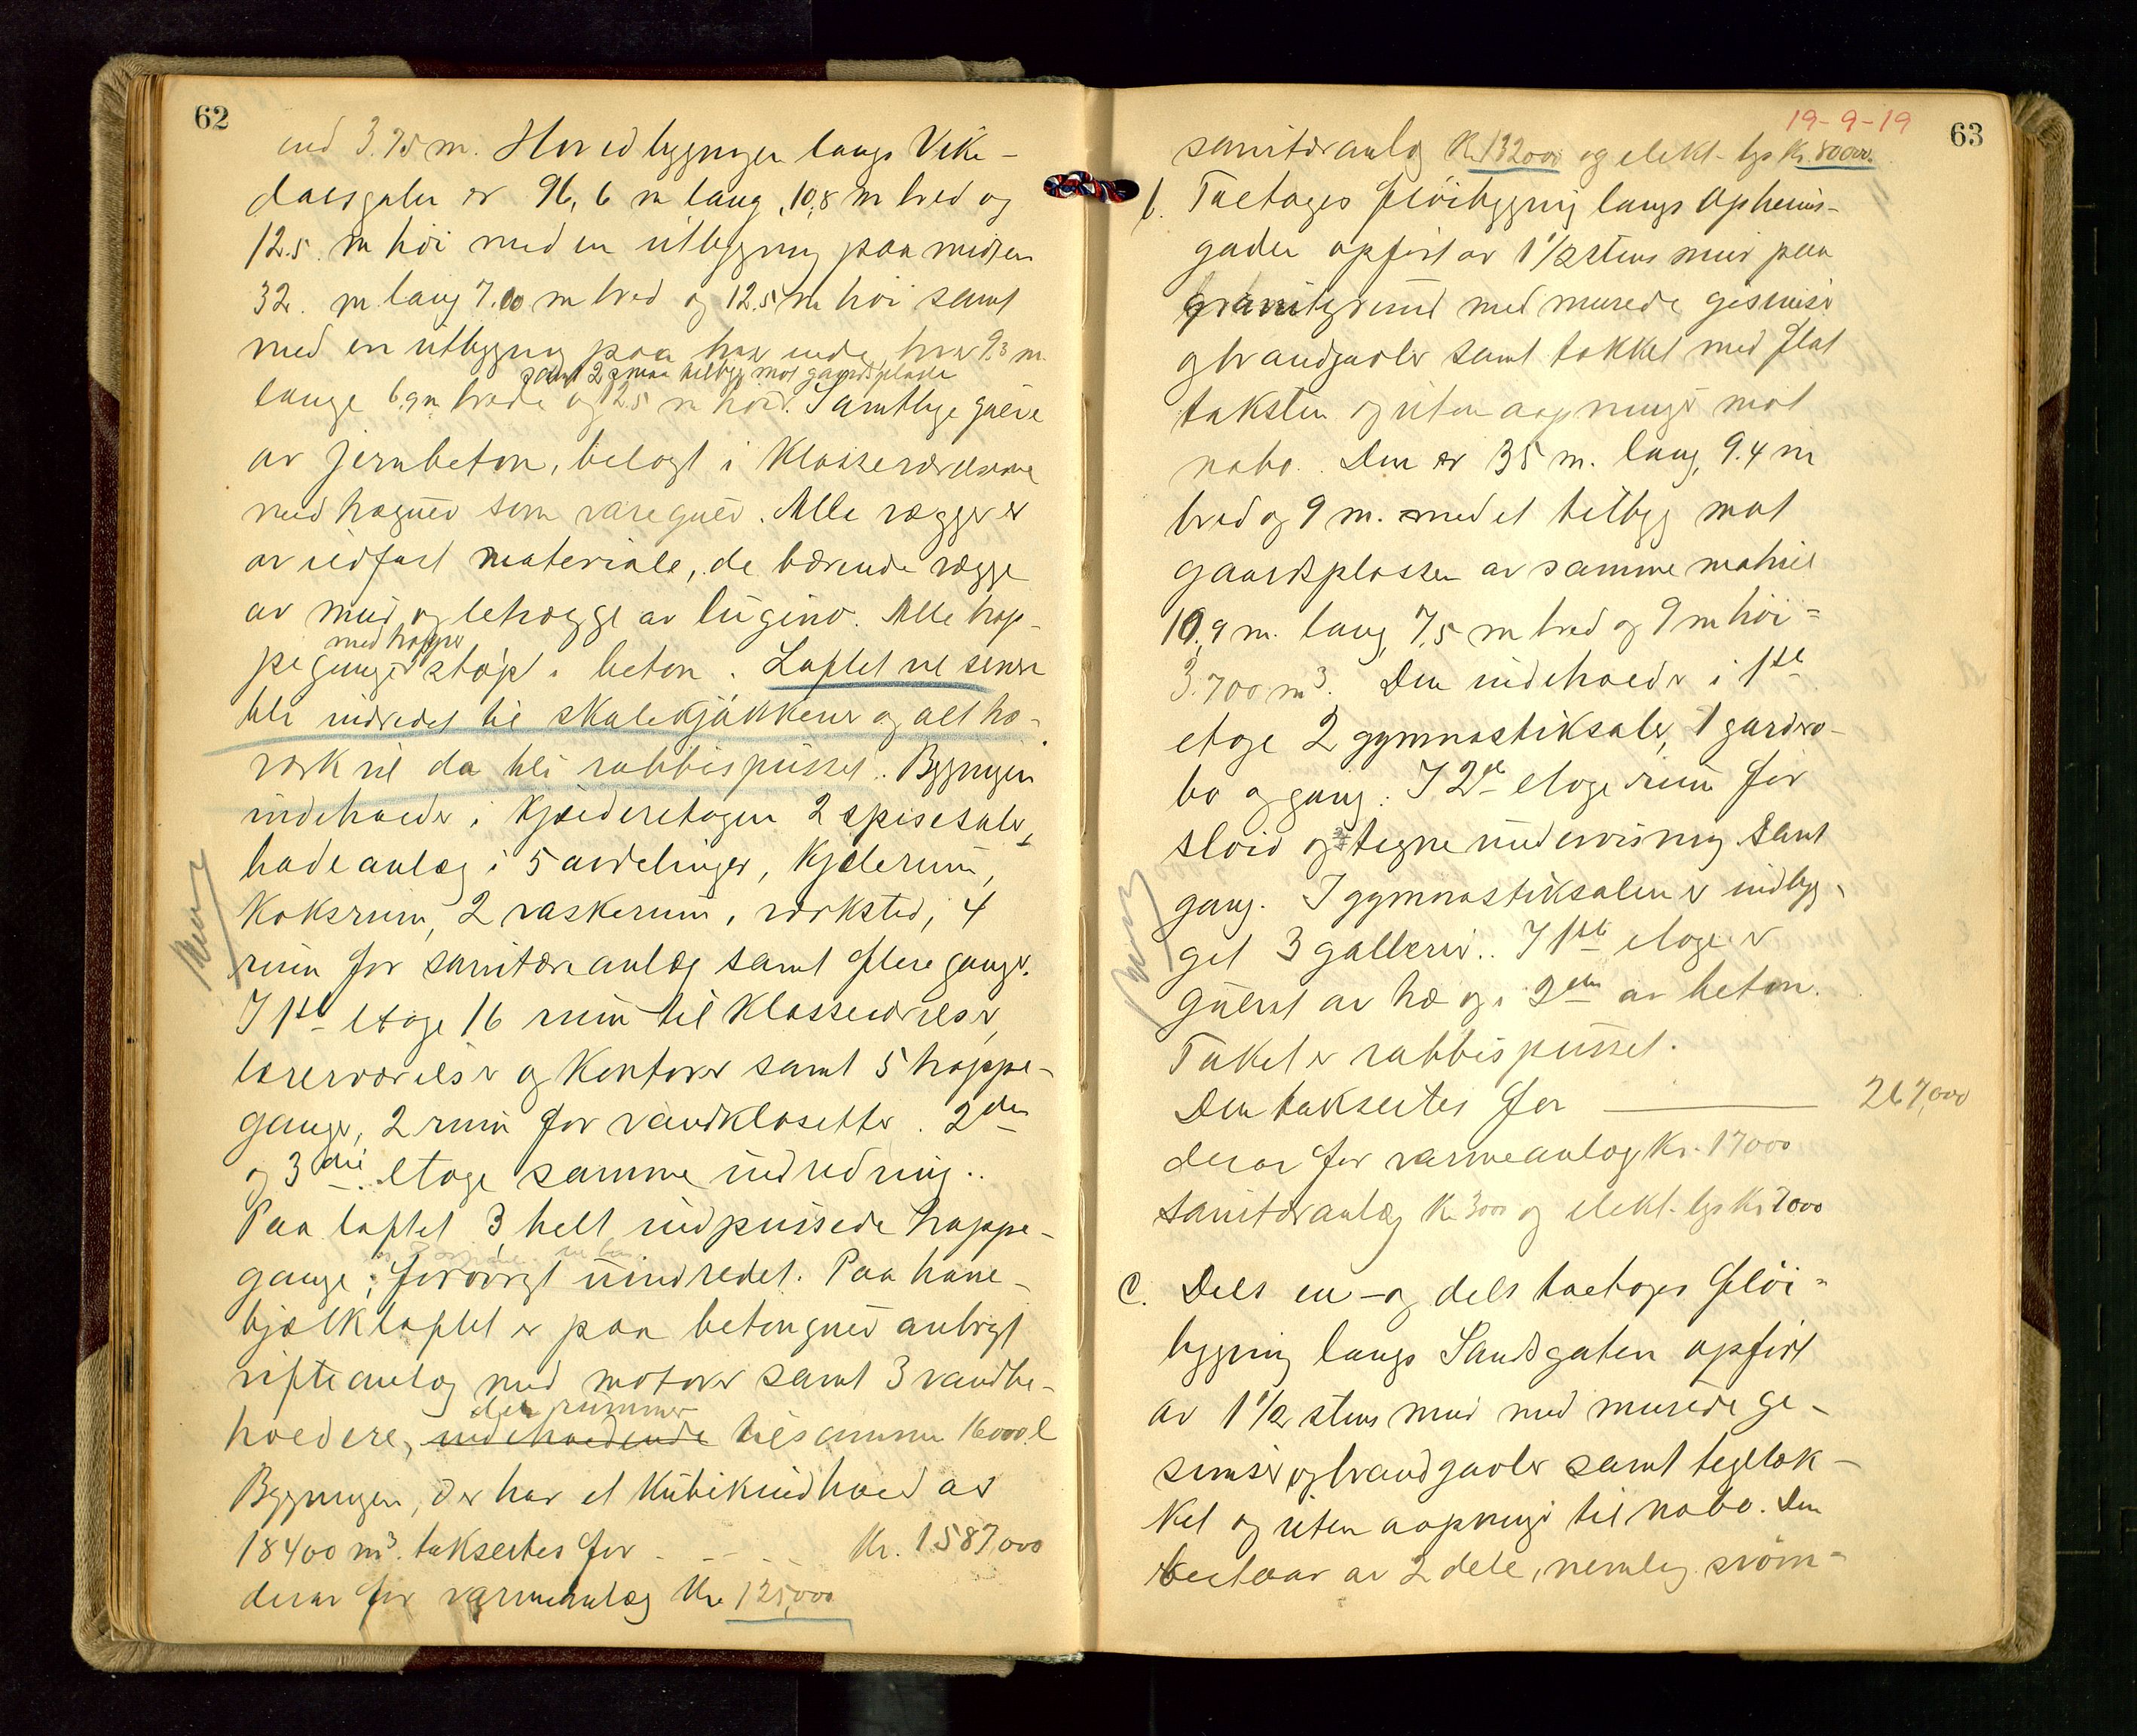 62
ind 3.75 m. Hovedbygningen langs Vike-
dalsgaten er 96,6 m lang, 10,8 m bred og
12.5 m höi med en utbygning paa midten
32. m. lang 7.00 m bred og 12.5 m höi samt
med en utbygning paa hver ende, hver 9.3 m
samt 2 smaa tilbygg mot gaardsplads
lange 6.9 m brede og 12.5 m höie. Samtlige gulve
av jernbeton, belagt i Klasseværelserne
med trægulv som varegulv. Alle vægger er
av ildfast materiale, de bærende vægge
av mur og letvægge av lugino. Alle trap-
med trapper
pegange støpt i beton. Loftet vil senere
bli indredet til skolekjøkkener og alt træ-
værk vil da bli rabbitspusset. Bygningen
indeholder i Kjælderetagen 2 spisesaler,
badeanlæg i 5 avdelinger, Kjelerum,
Koksrum, 2 vaskerum, værksted, 4
rum for sanitæranlæg samt flere ganger.
I 1ste etage 16 rum til Klasseværelser,
lærerværelser og Kontorer samt 5 trappe-
ganger, 2 rum for vandklosetter. 2den
og 3die etage samme indredning.
Paa loftet 3 helt indpussede trappe-
gange; forövrigt uindredet. Paa hane-
bjælkloftet er paa betongulv anbragt
vifteanlæg med motorer samt 3 vandbe-
der rummer
holdere, indeholdende tilsammen 16000 l
Bygningen, der har et Kubikindhold av
18400 m³. taksertes for - - - - Kr. 1587000
derav for varmeanlæg Kr. 125,000
19-9-19
63
sanitæranlæg Kr 132000 og elekt. lys Kr. 80000.
b. Toetages flöibygning langs Opheims-
gaden opfört av 1½ stens mur paa
granitgrund med murede gesimser
og brandgavler samt tækket med flat
taksten og uten aapninger mot
nabo. Den er 35 m. lang, 9.4 m
bred og 9 m. med et tilbygg mot
gaardsplassen av samme materiel
10,9 m. lang, 7,5 m bred og 9 m höi =
3.700 m³. Den indeholder i 1ste
etage 2 gymnastiksaler, 1 gardero-
be og gang. I 2den etage rum for
slöid og tegneundervisning samt
gang. I gymnastiksalen er indbyg-
get 3 gallerier. I 1ste etage er
gulvet av træ og i 2den av beton.
Taket er rabbitspusset.
Den taksertes for ——— 267,000
derav for varmeanlæg Kr. 17000
sanitæranlæg Kr 300 og elekt. lys Kr 7000
c. Dels en- og dels toetages flöi-
bygning langs Sandsgaten opfört
av 1½ stens mur med murede ge-
simser og brandgavler samt tegltæk-
ket og uten aapninger til nabo. Den
bestaar av 2 dele, nemlig svöm-